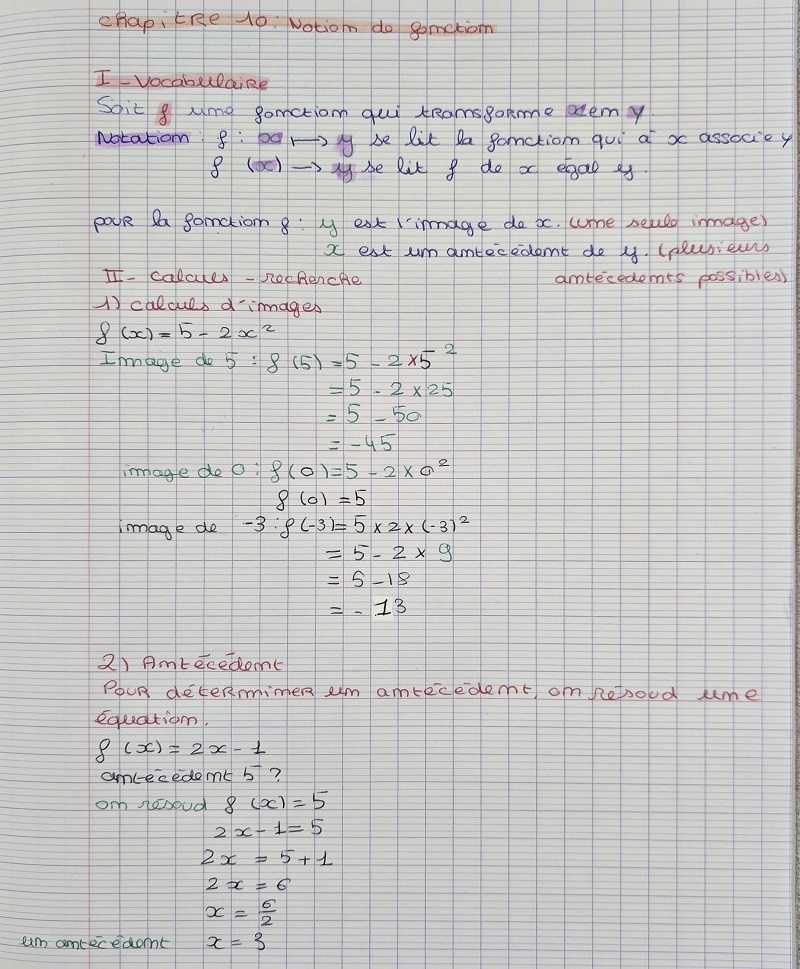 Chapitre 10 : Notion de fonction
I - Vocabulaire
Soit f une fonction qui transforme x en y
Notation : f : x ⟼ y se lit la fonction qui à x associe y
f (x) → y se lit f de x égal y.
pour la fonction f : y est l'image de x. (une seule image)
x est un antécédent de y. (plusieurs
antécédents possibles)
II - Calculs - recherche
1) calculs d'images
f (x) = 5 - 2x²
Image de 5 : f (5) = 5 - 2 × 5²
= 5 - 2 × 25
= 5 - 50
= -45
image de 0 : f (0) = 5 - 2 × 0²
f (0) = 5
image de -3 : f (-3) = 5 × 2 × (-3)²
= 5 - 2 × 9
= 5 - 18
= - 13
2) Antécédent
Pour déterminer un antécédent, on résoud une
équation.
f (x) = 2x - 1
antécédent 5 ?
on résoud f (x) = 5
2x - 1 = 5
2x = 5 + 1
2x = 6
x = 6/2
un antécédent x = 3